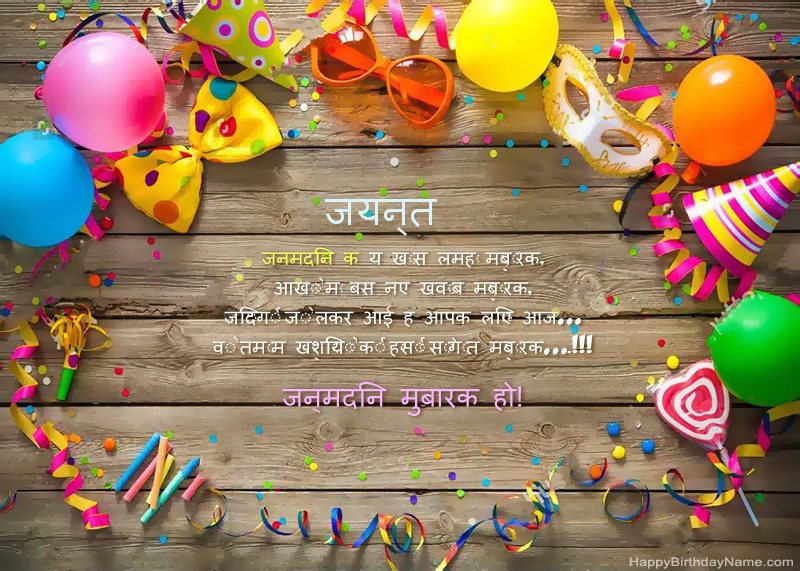 जयन्त
जनमदिन क य खास लमह मबारक,
आखों म बस नए खवाब मबारक,
जिदगी जो लेकर आई ह आपक लिए आज...
व तमाम खुशियों की हसी सौगात मबारक...!!!
जन्मदिन मुबारक हो!
HappyBirthdayName.com